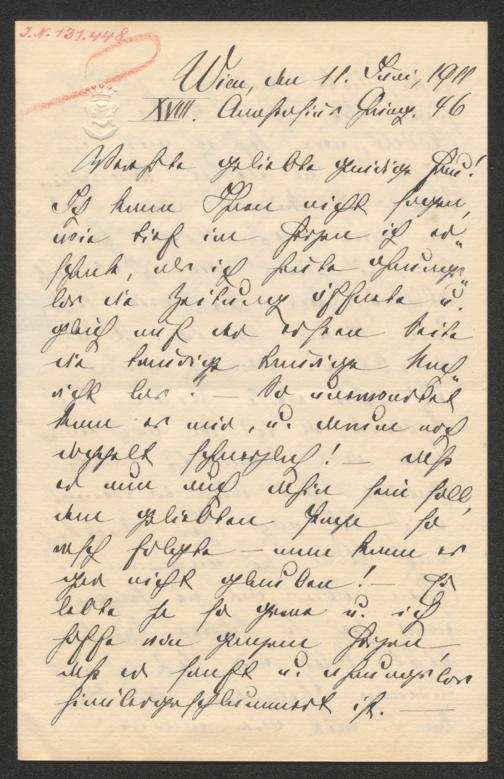 J.N. 131.448
Wien, den 11. Juni, 1911
XVIII. Anastasius Grüng. 46
Verehrte geliebte gnädige Frau!
Ich kann Ihnen nicht sagen,
wie tief im Herzen ich er-
schrak, als ich heute ahnungs-
los die Zeitung öffnete u.
gleich auf der ersten Seite
die traurige traurige Nach-
richt las! – So unerwartet
kam es mir, u. darum noch
doppelt schmerzlich! – daß
er nun auch dahin sein soll,
dem geliebten so
rasch folgte – man kann es
gar nicht glauben! – Er
lebte ja so gerne u. ich
hoffe von ganzem Herzen,
daß er sanft u. ahnungslos
hinübergeschlummert ist. –